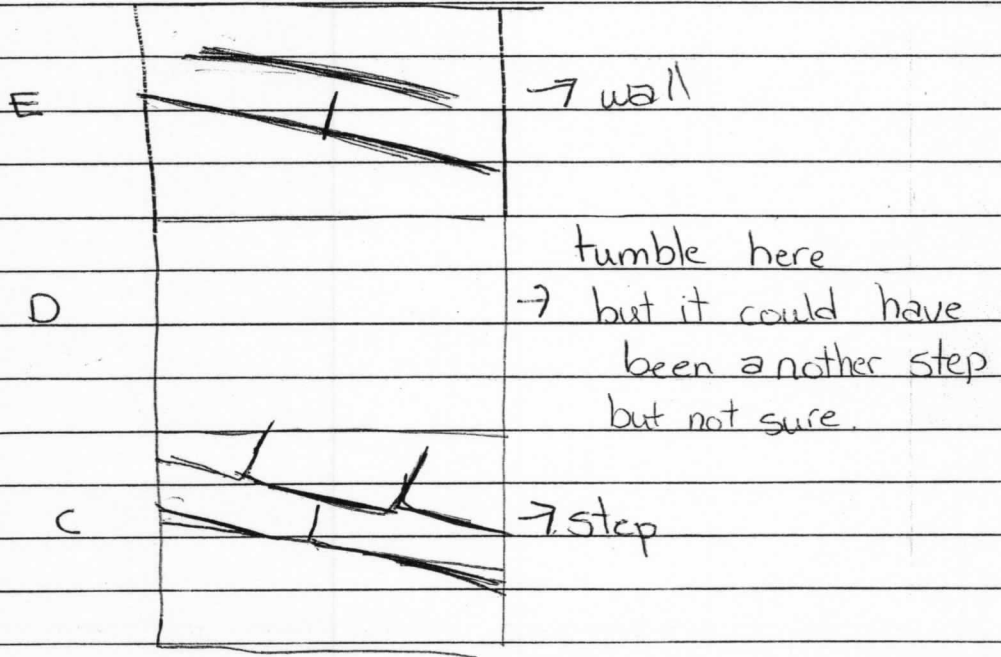 E → wall
tumble here
D → but it could have
been another step
but not sure.
C → step